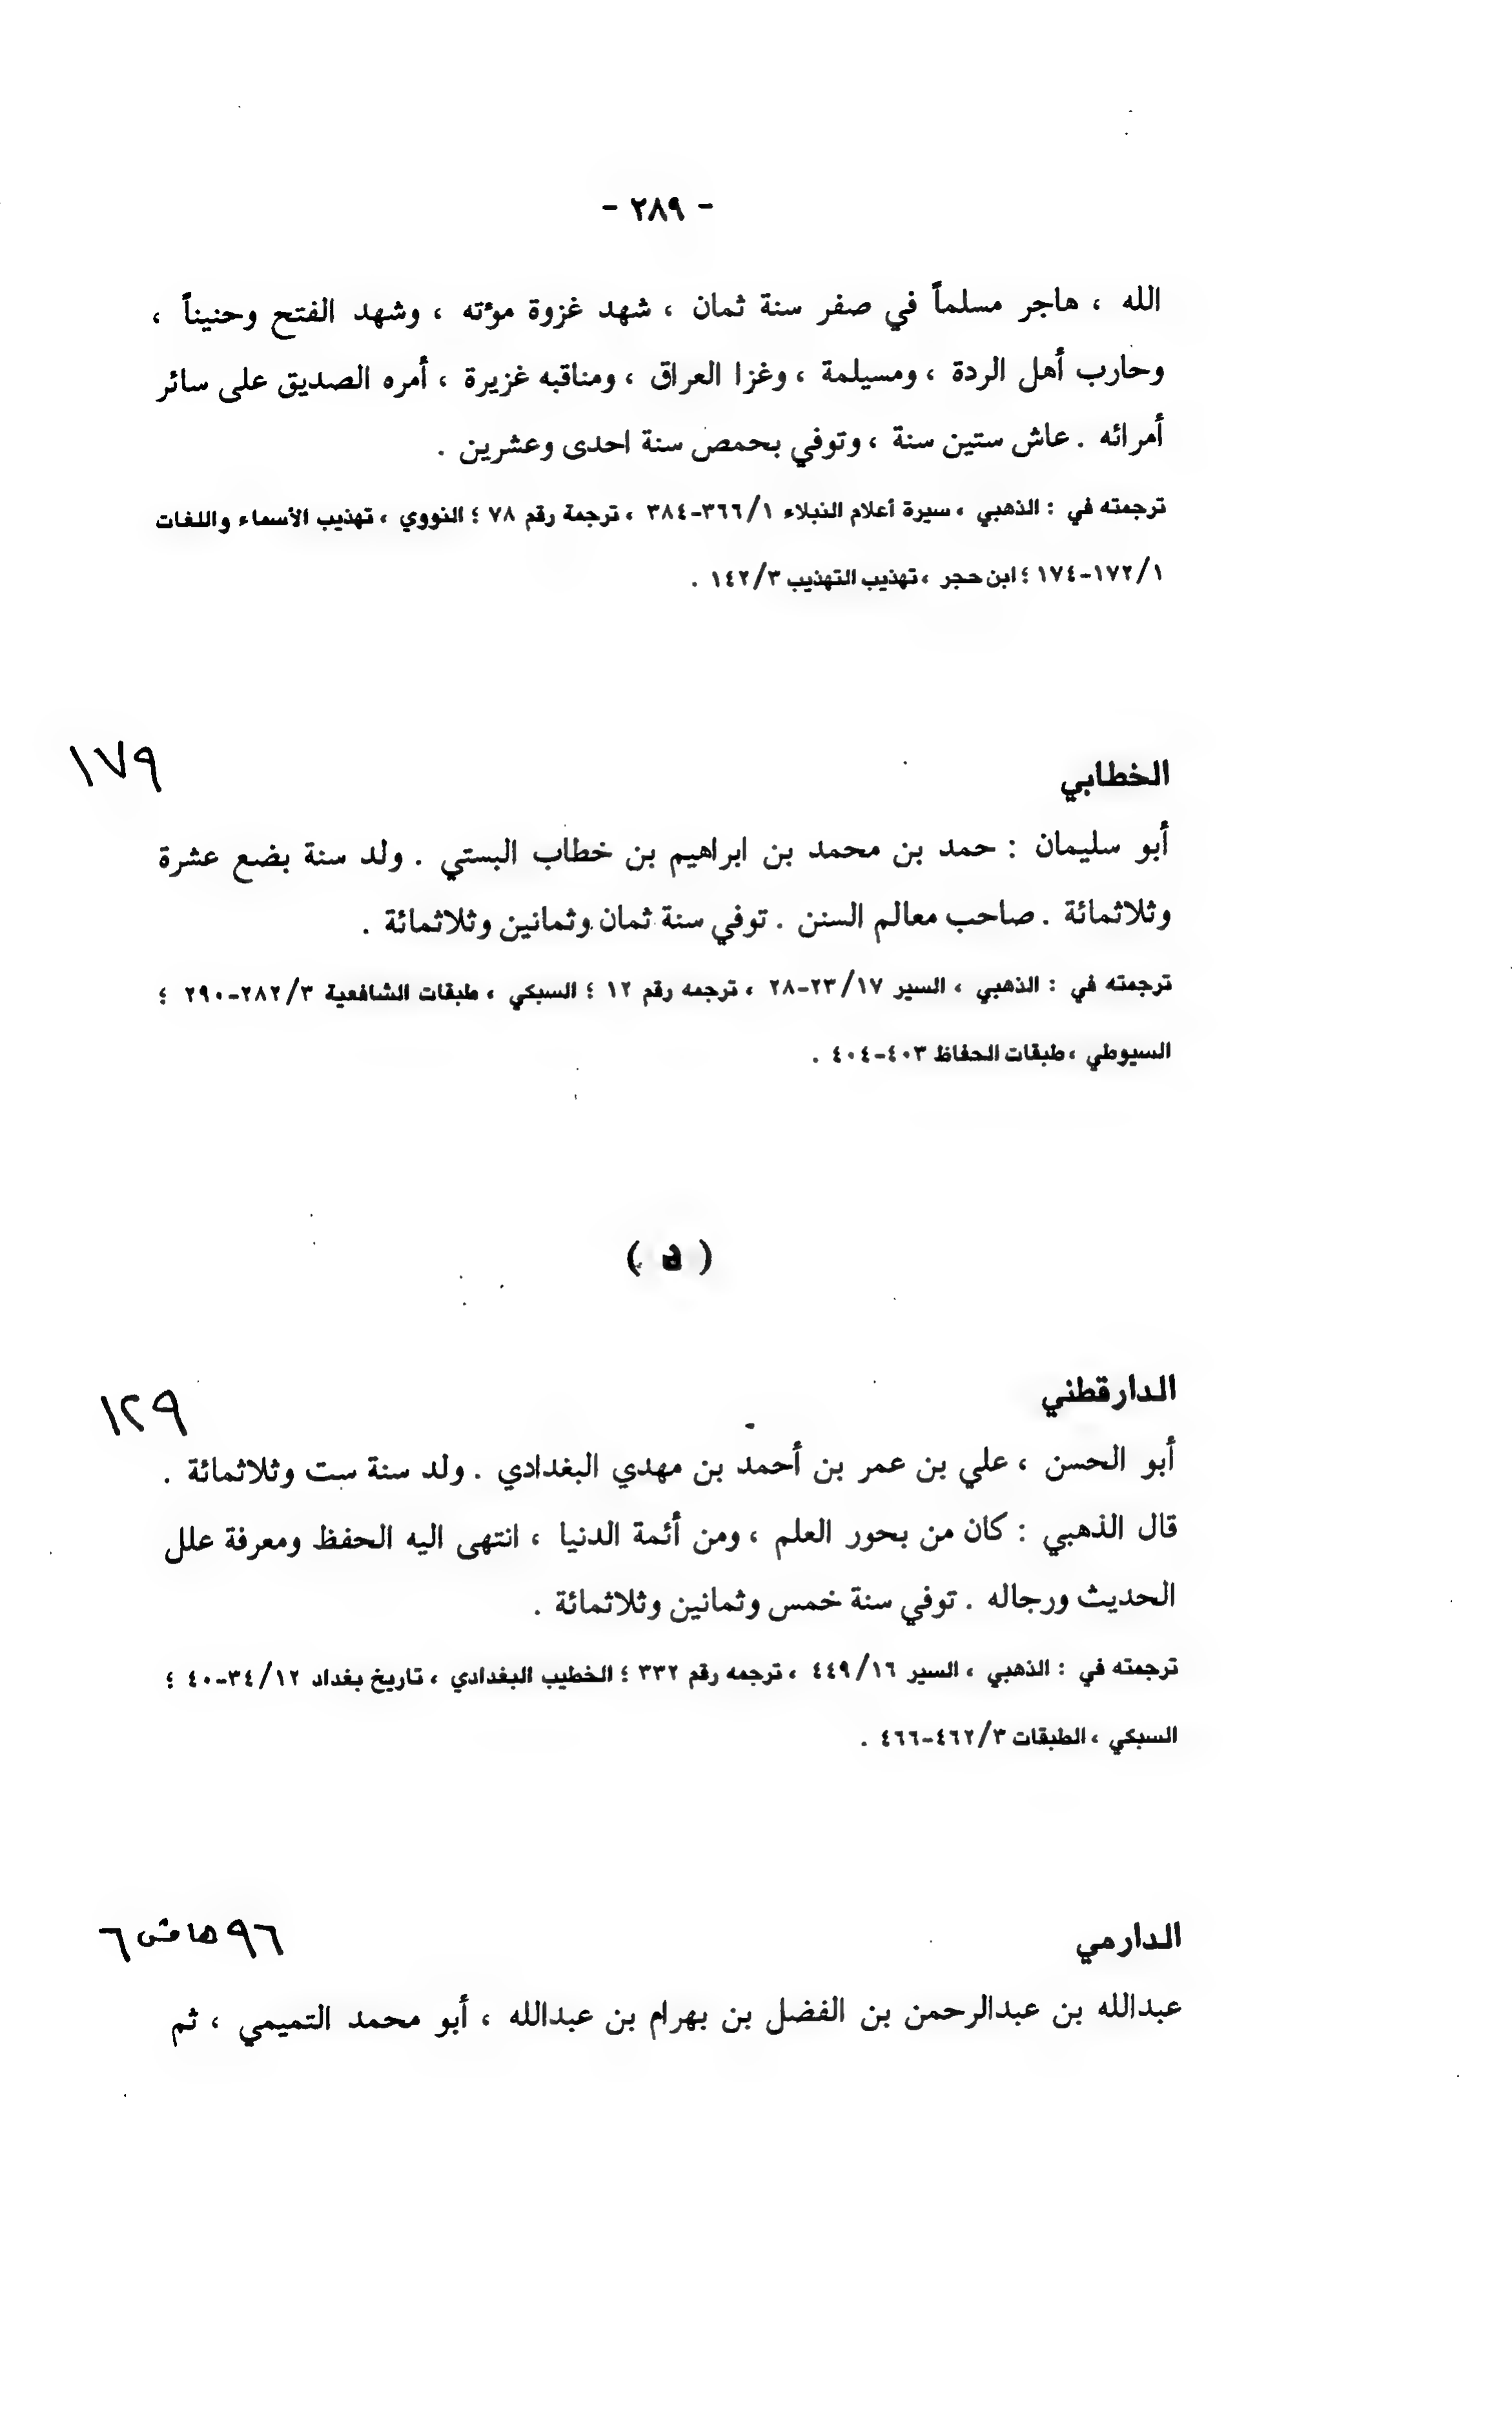 - ٢٨٩ -
الله ، هاجر مسلماً في صفر سنة ثمان ، شهد غزوة مؤته ، وشهد الفتح وحنيناً ،
وحارب أهل الردة ، ومسيلمة ، وغزا العراق ، ومناقبه غزيرة ، أمره الصديق على سائر
أمرائه . عاش ستين سنة ، وتوفي بحمص سنة احدى وعشرين .
ترجمته في : الذهبي ، سيرة أعلام النبلاء ١/٣٦٦-٣٨٤ ، ترجمة رقم ٧٨ ؛ النووي ، تهذيب الأسماء واللغات
١/١٧٢-١٧٤ ؛ ابن حجر ، تهذيب التهذيب ٣/١٤٢ .
الخطابي ١٧٩
أبو سليمان : حمد بن محمد بن ابراهيم بن خطاب البستي . ولد سنة بضع عشرة
وثلاثمائة . صاحب معالم السنن . توفي سنة ثمان وثمانين وثلاثمائة .
ترجمته في : الذهبي ، السير ١٧/٢٣-٢٨ ، ترجمه رقم ١٢ ؛ السبكي ، طبقات الشافعية ٣/٢٨٢-٢٩٠ ؛
السيوطي ، طبقات الحفاظ ٤٠٣-٤٠٤ .
( د )
الدارقطني ١٢٩
أبو الحسن ، علي بن عمر بن أحمد بن مهدي البغدادي . ولد سنة ست وثلاثمائة .
قال الذهبي : كان من بحور العلم ، ومن أئمة الدنيا ، انتهى اليه الحفظ ومعرفة علل
الحديث ورجاله . توفي سنة خمس وثمانين وثلاثمائة .
ترجمته في : الذهبي ، السير ١٦/٤٤٩ ، ترجمه رقم ٣٣٢ ؛ الخطيب البغدادي ، تاريخ بغداد ١٢/٣٤-٤٠ ؛
السبكي ، الطبقات ٣/٤٦٢-٤٦٦ .
الدارمي ٩٦ هامش ٦
عبدالله بن عبدالرحمن بن الفضل بن بهرام بن عبدالله ، أبو محمد التميمي ، ثم